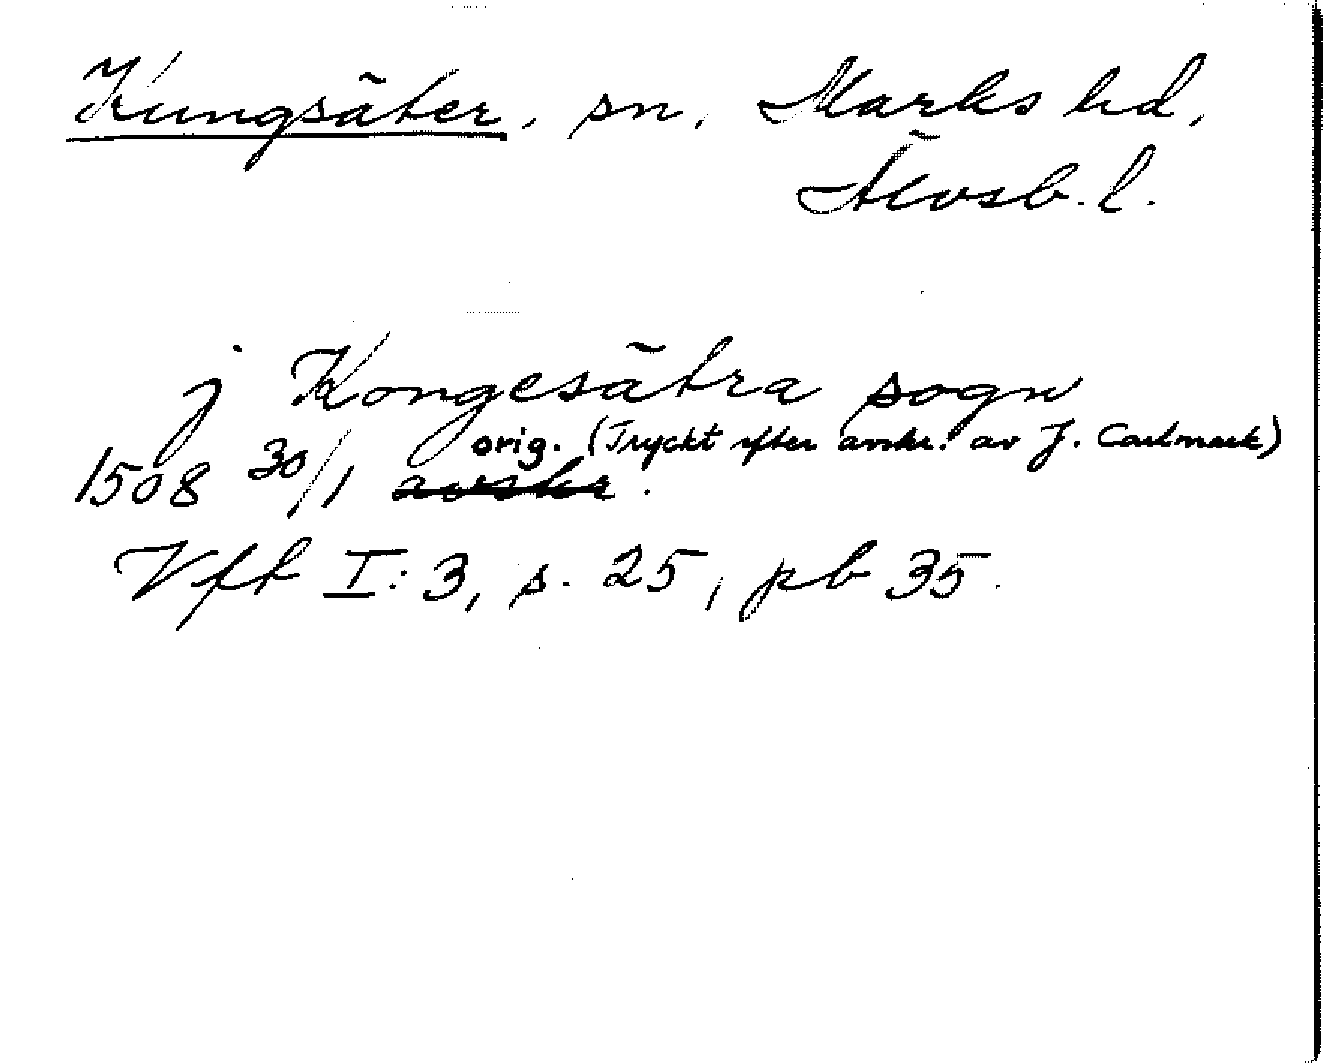 Kungsäter, sn, Marks hd,
Älvsb. l.
j Kongesätra sogn
orig. (Tryckt efter avskr. av J. Carlmark)
1508 30/1 avskr.
Vft I:3, s. 25, pb 35.